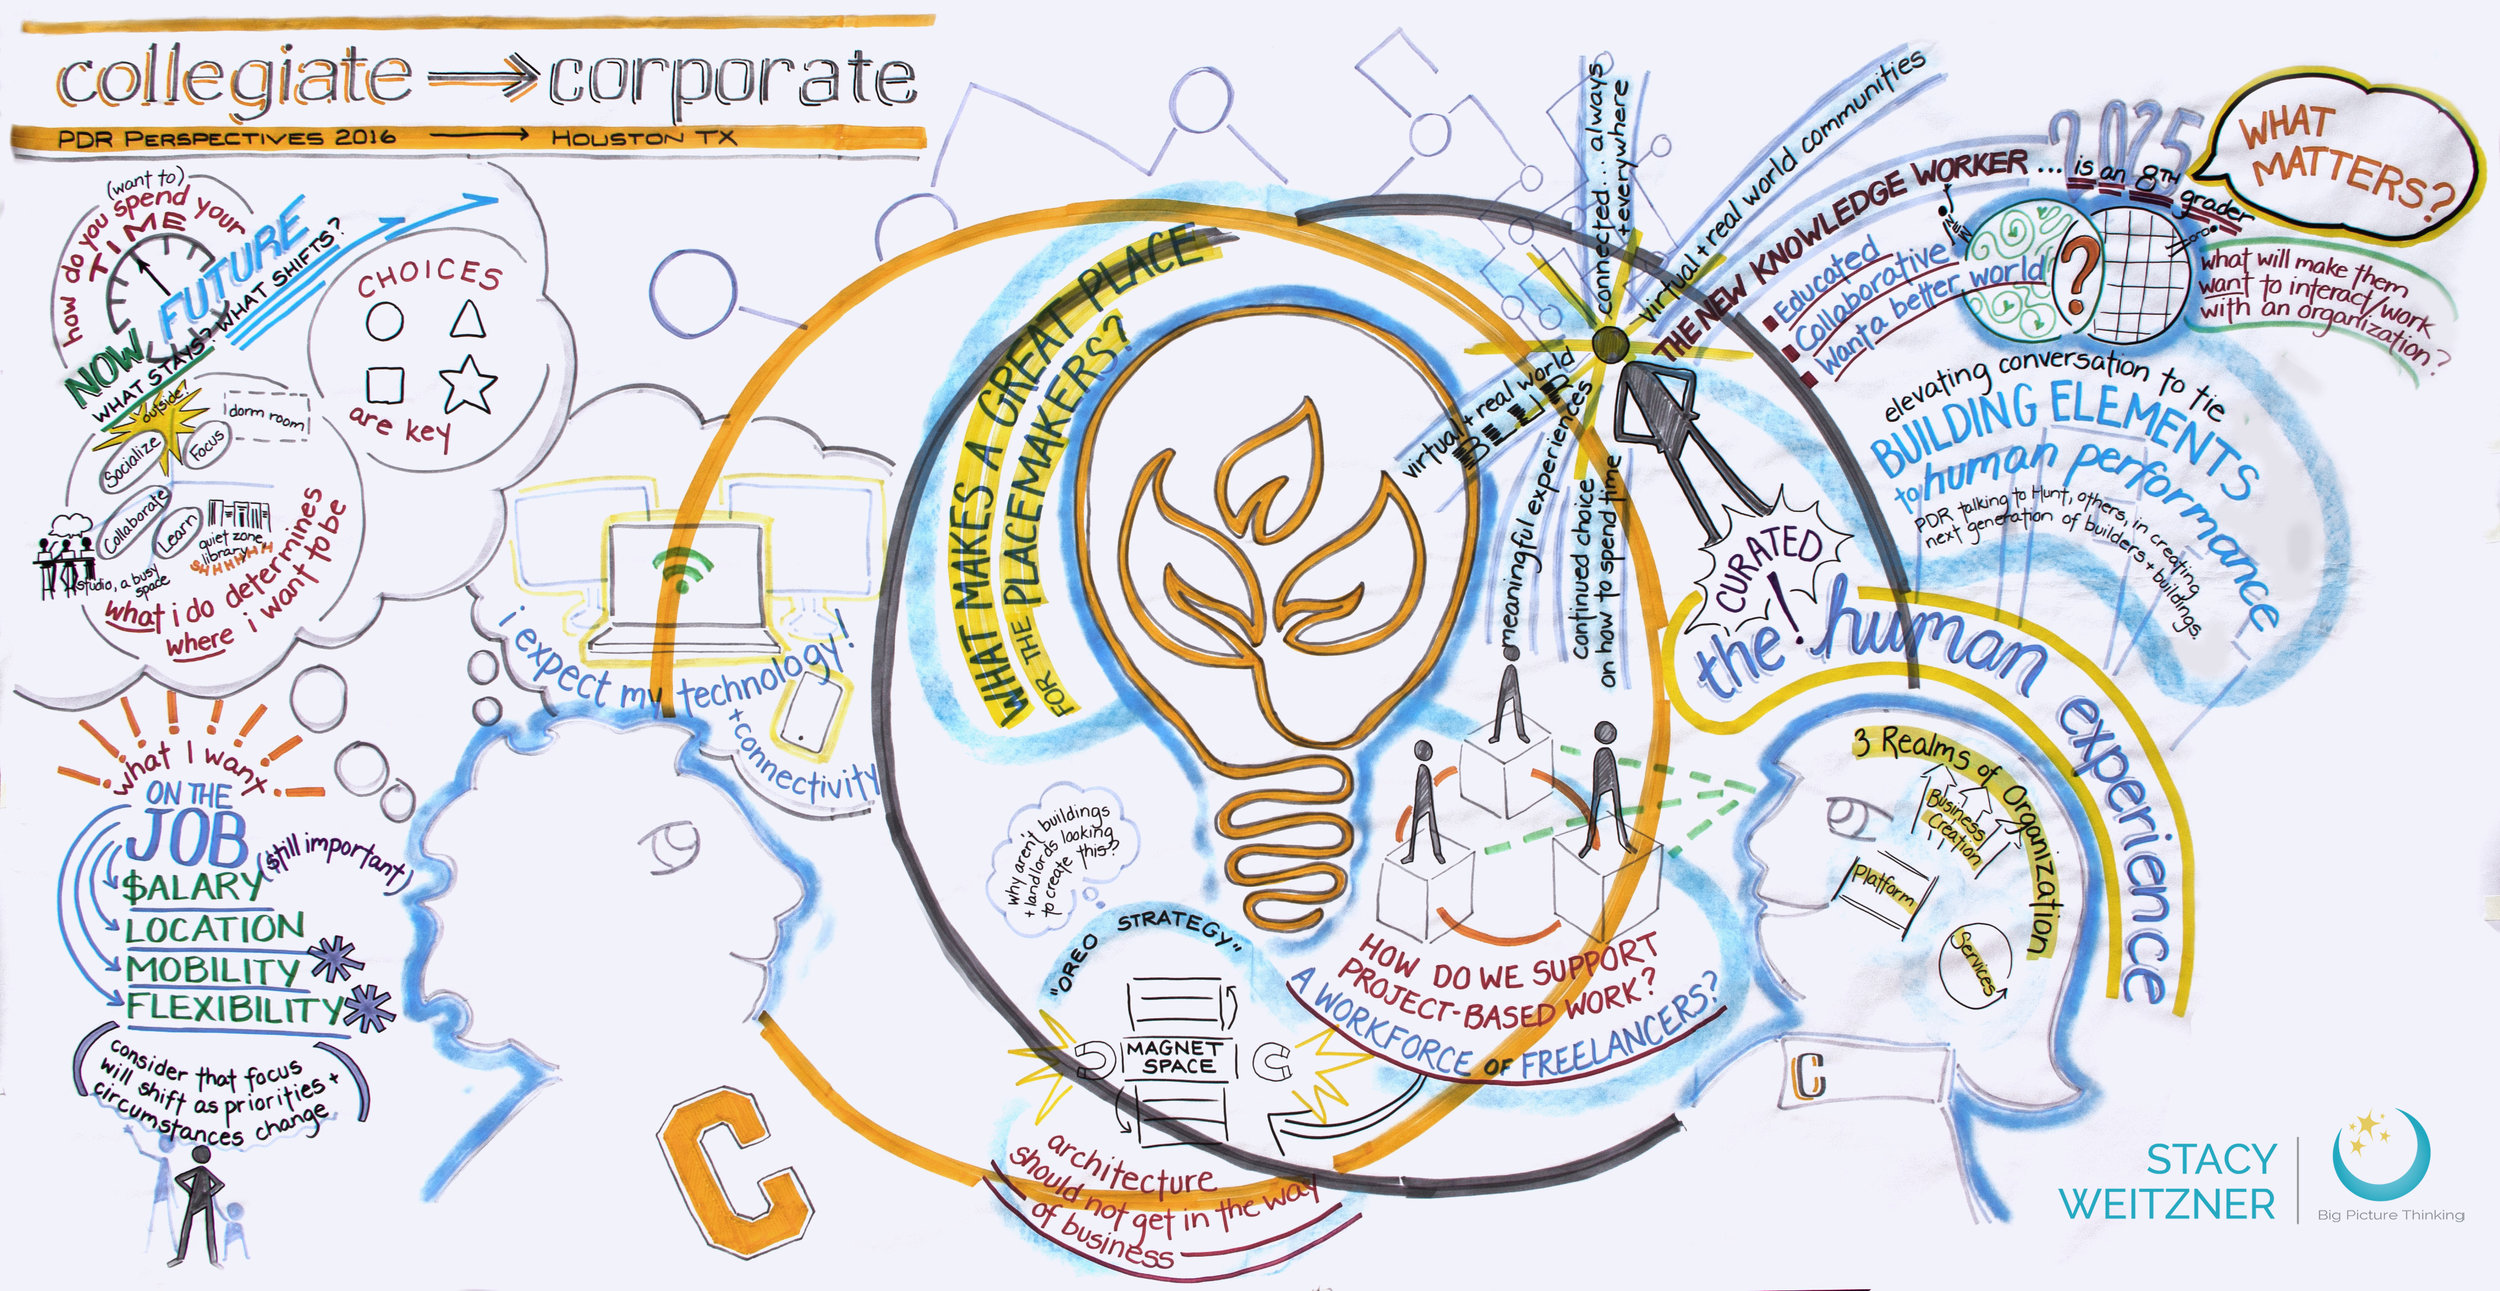 collegiate → corporate
PDR PERSPECTIVES 2016 → HOUSTON TX
(want to)
how do you spend your
TIME
NOW
FUTURE
WHAT STAYS? WHAT SHIFTS?
CHOICES
are key
outside!
dorm room
Socialize
Focus
Collaborate
Learn
quiet zone
library
SHHHHHH
studio, a busy
space
what i do determines
where i want to be
i expect my technology!
+ connectivity
what I want
ON THE
JOB
(still important)
$ALARY
LOCATION
MOBILITY
FLEXIBILITY
(consider that focus
will shift as priorities +
circumstances change)
C
WHAT MAKES A GREAT PLACE
FOR THE PLACEMAKERS?
why aren't buildings
+ landlords looking
to create this?
"OREO STRATEGY"
MAGNET
SPACE
architecture
should not get in the way
of business
HOW DO WE SUPPORT
PROJECT-BASED WORK?
A WORKFORCE OF FREELANCERS?
connected... always
+ everywhere
virtual + real world communities
virtual + real world
BLUR
meaningful experiences
continued choice
on how to spend time
THE NEW KNOWLEDGE WORKER ... is an 8TH grader
2025
WHAT
MATTERS?
Educated
Collaborative
Want a better world
NEW
?
what will make them
want to interact/work
with an organization?
elevating conversation to tie
BUILDING ELEMENTS
to human performance
PDR talking to Hunt, others, in creating
next generation of builders + buildings.
CURATED
!
the human experience
3 Realms of Organization
Business
Creation
Platform
Services
C
STACY
WEITZNER
Big Picture Thinking